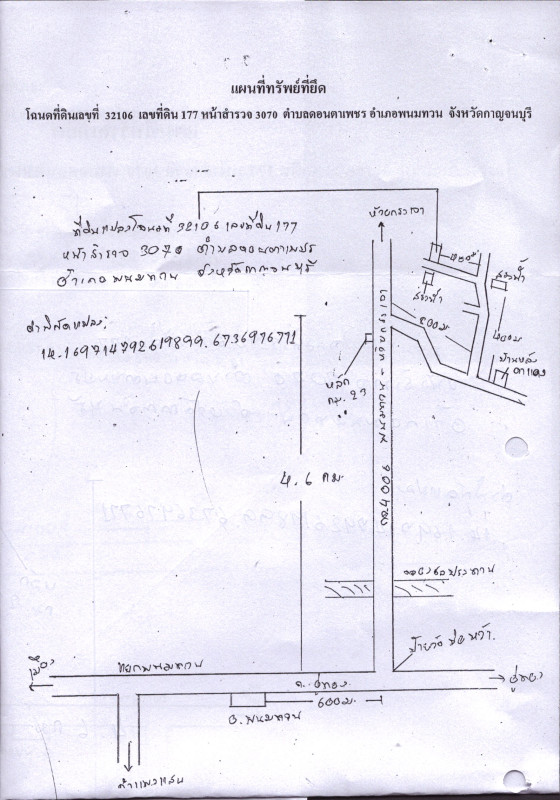 แผนที่ทรัพย์ที่ยึด
โฉนดที่ดินเลขที่ 32106 เลขที่ดิน 177 หน้าสำรวจ 3070 ตำบลดอนตาเพชร อำเภอพนมทวน จังหวัดกาญจนบุรี
ห้วยกระเจา
ที่ดินแปลงโฉนดที่ 32106 เลขที่ดิน 177
หน้าสำรวจ 3070 ตำบลดอนตาเพชร
อำเภอพนมทวน จังหวัดกาญจนบุรี
ค่าพิกัดแปลง
14.169714792619899.6736976771
800 ม.
หลัก
กม. 27
4.6 กม.
คลองชลประทาน
แยกพนมทวน
เมือง
ถ. อู่ทอง
อู่ทอง
600 ม.
อ. พนมทวน
กำแพงแสน